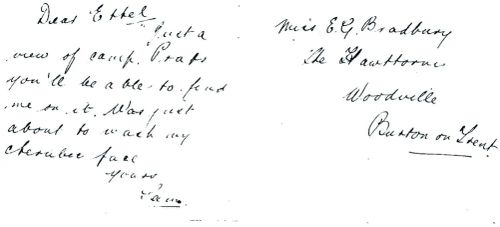 Dear Ethel
Just a
view of camp. Praps
you'll be able to find
me on it. Was just
about to wash my
cherubic face
Yours
Sam.
Miss E.G. Bradbury
The Hawthorns
Woodville
Burton on Trent